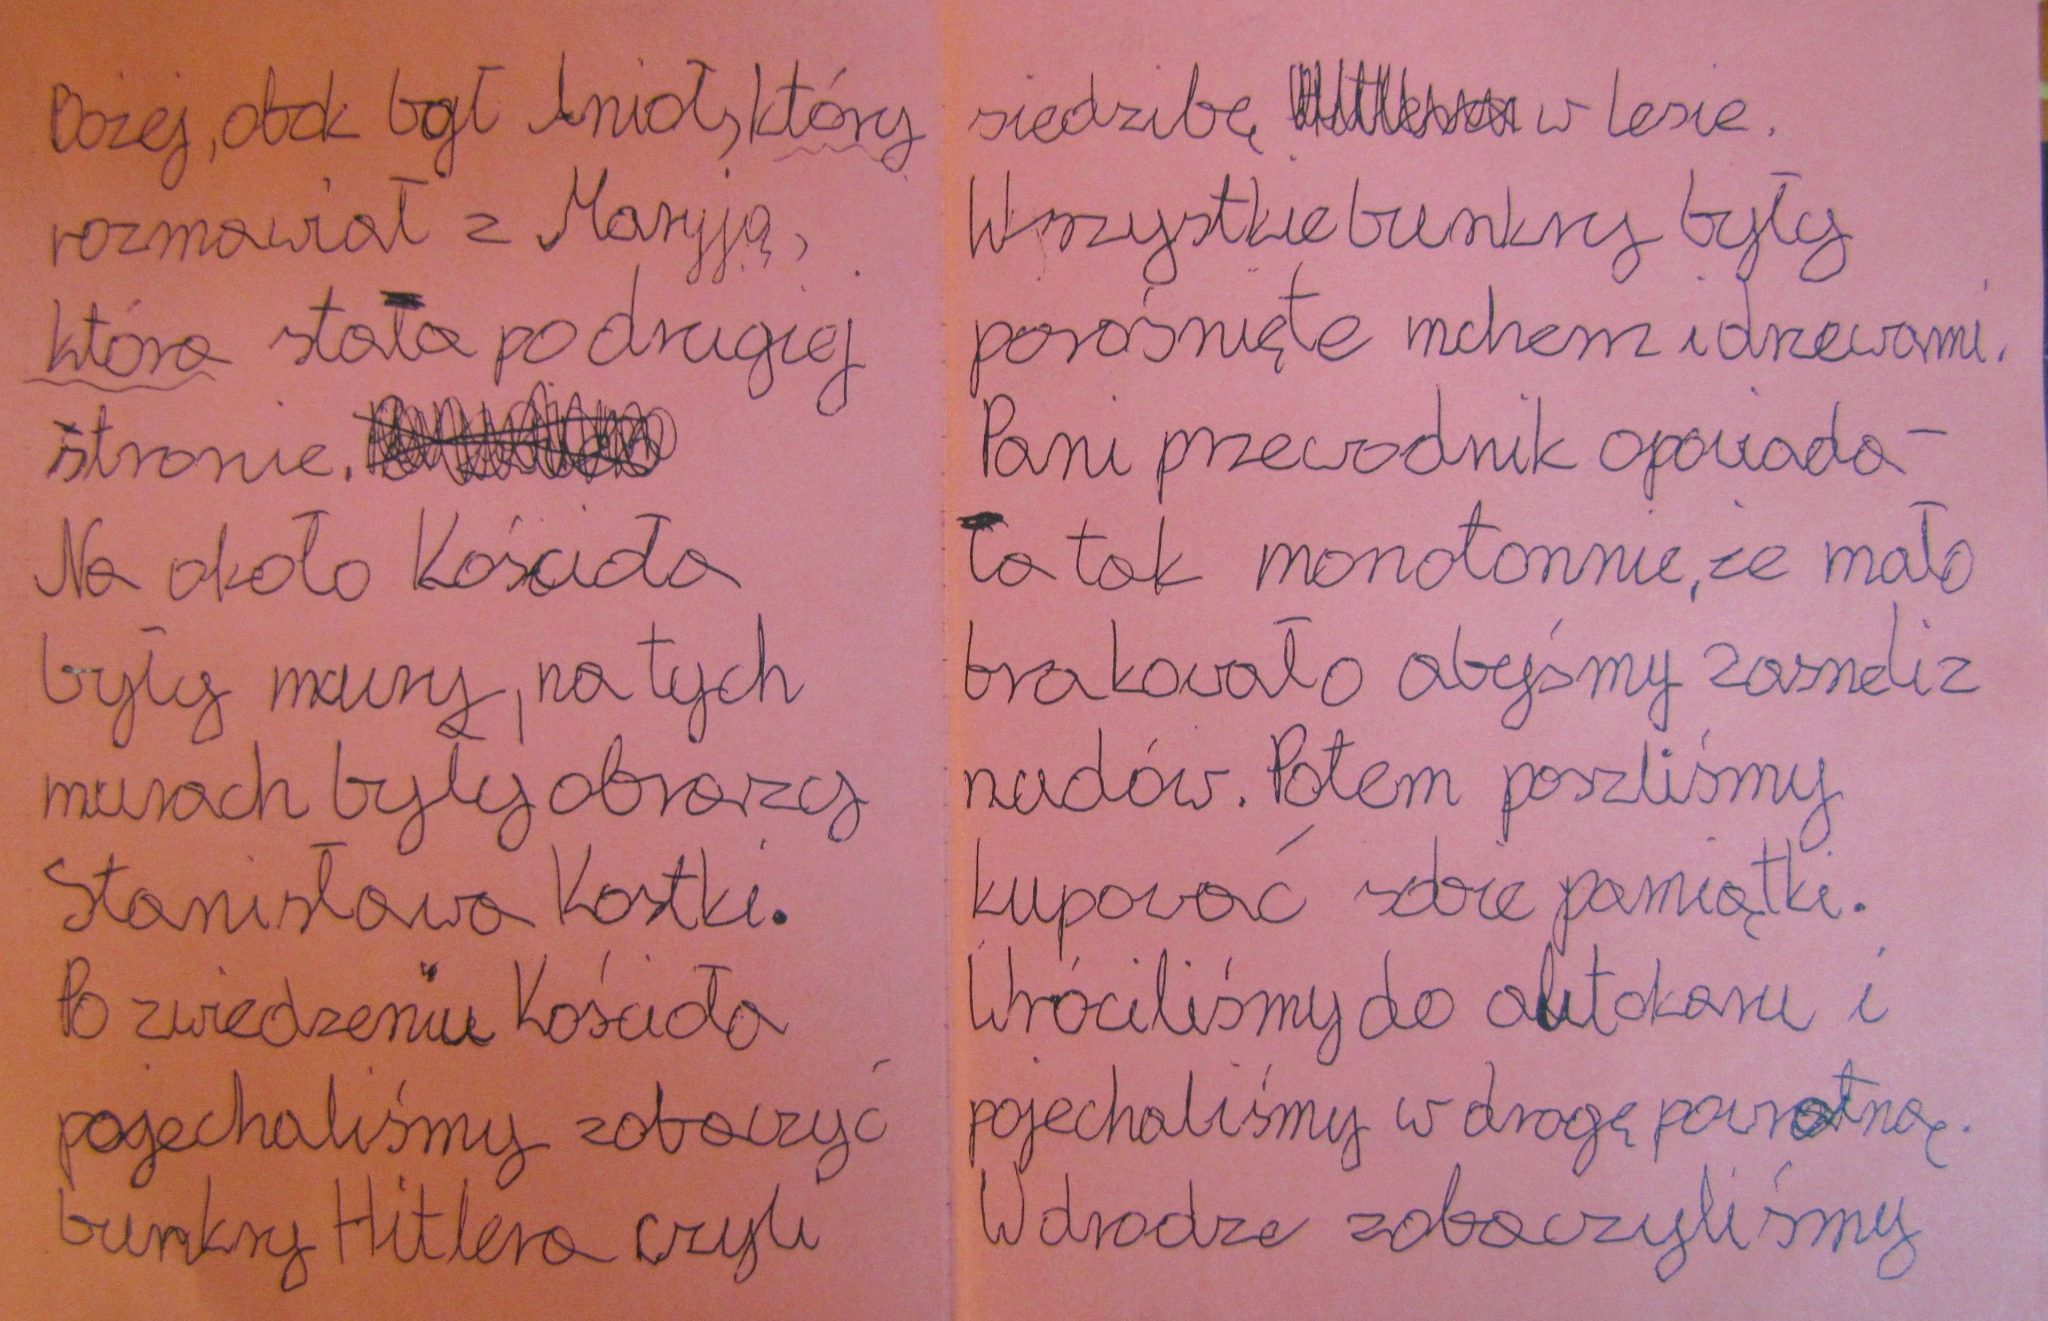 Bożej, obok był Anioł, który
rozmawiał z Maryją,
która stała po drugiej
stronie.
Na około Kościoła
były mury, na tych
murach były obrazy
Stanisława Kostki.
Po zwiedzeniu Kościoła
pojechaliśmy zobaczyć
bunkry Hitlera czyli
siedzibę w lesie.
Wszystkie bunkry były
porośnięte mchem i drzewami.
Pani przewodnik opowiada-
ła tak monotonnie, że mało
brakowało abyśmy zasneli z
nudów. Potem poszliśmy
kupować sobie pamiątki.
Wróciliśmy do autokaru i
pojechaliśmy w drogę powrotną.
W drodze zobaczyliśmy